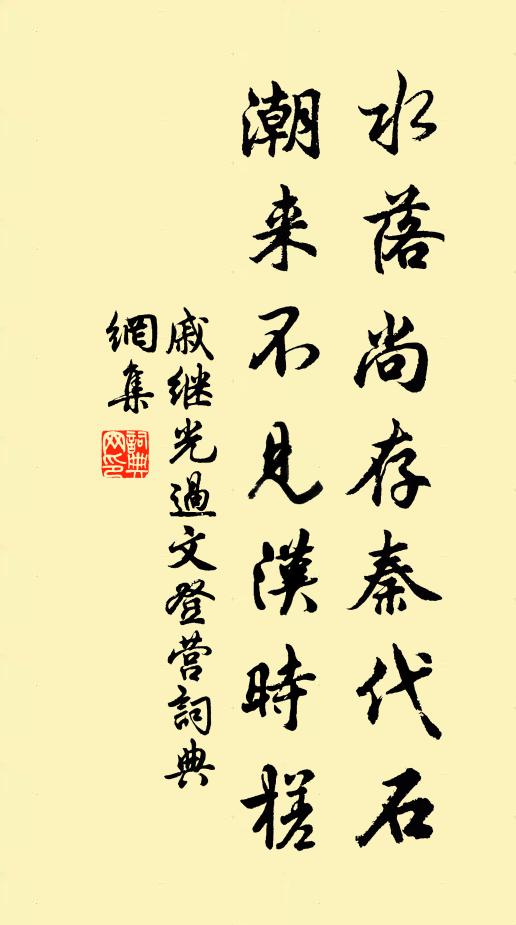 水落尚存秦代石
潮来不見漢時槎
戚继光過文登营詞典
網集
詞典
网印